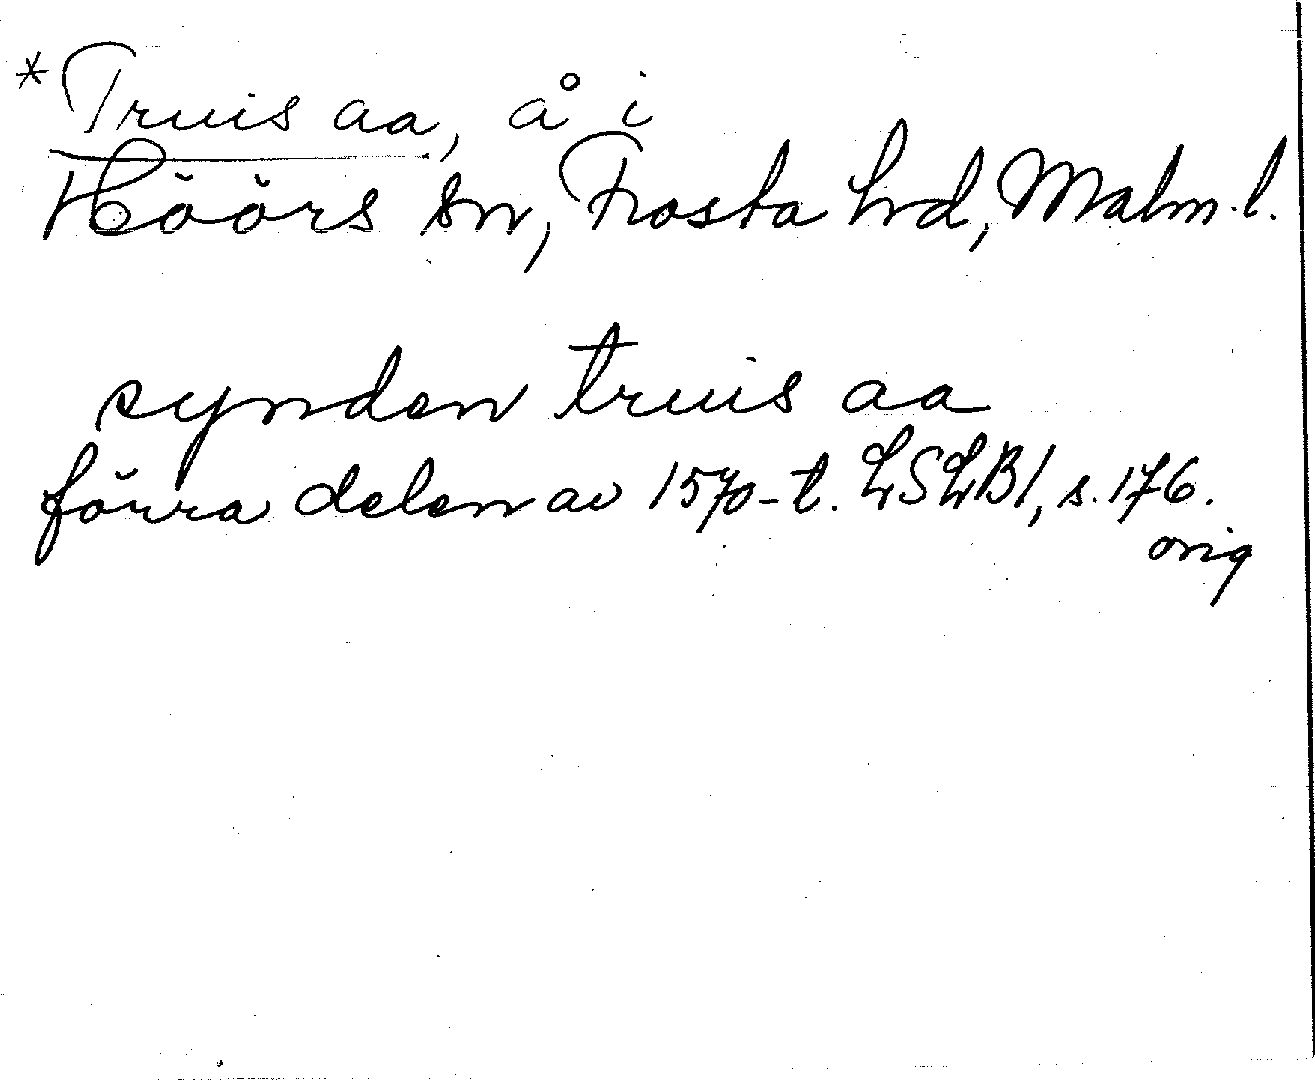 *Truis aa, å i
Höörs sn, Frosta hrd, Malm. l.
synden truis aa
förra delen av 1570-t. LSLB1, s. 176.
orig